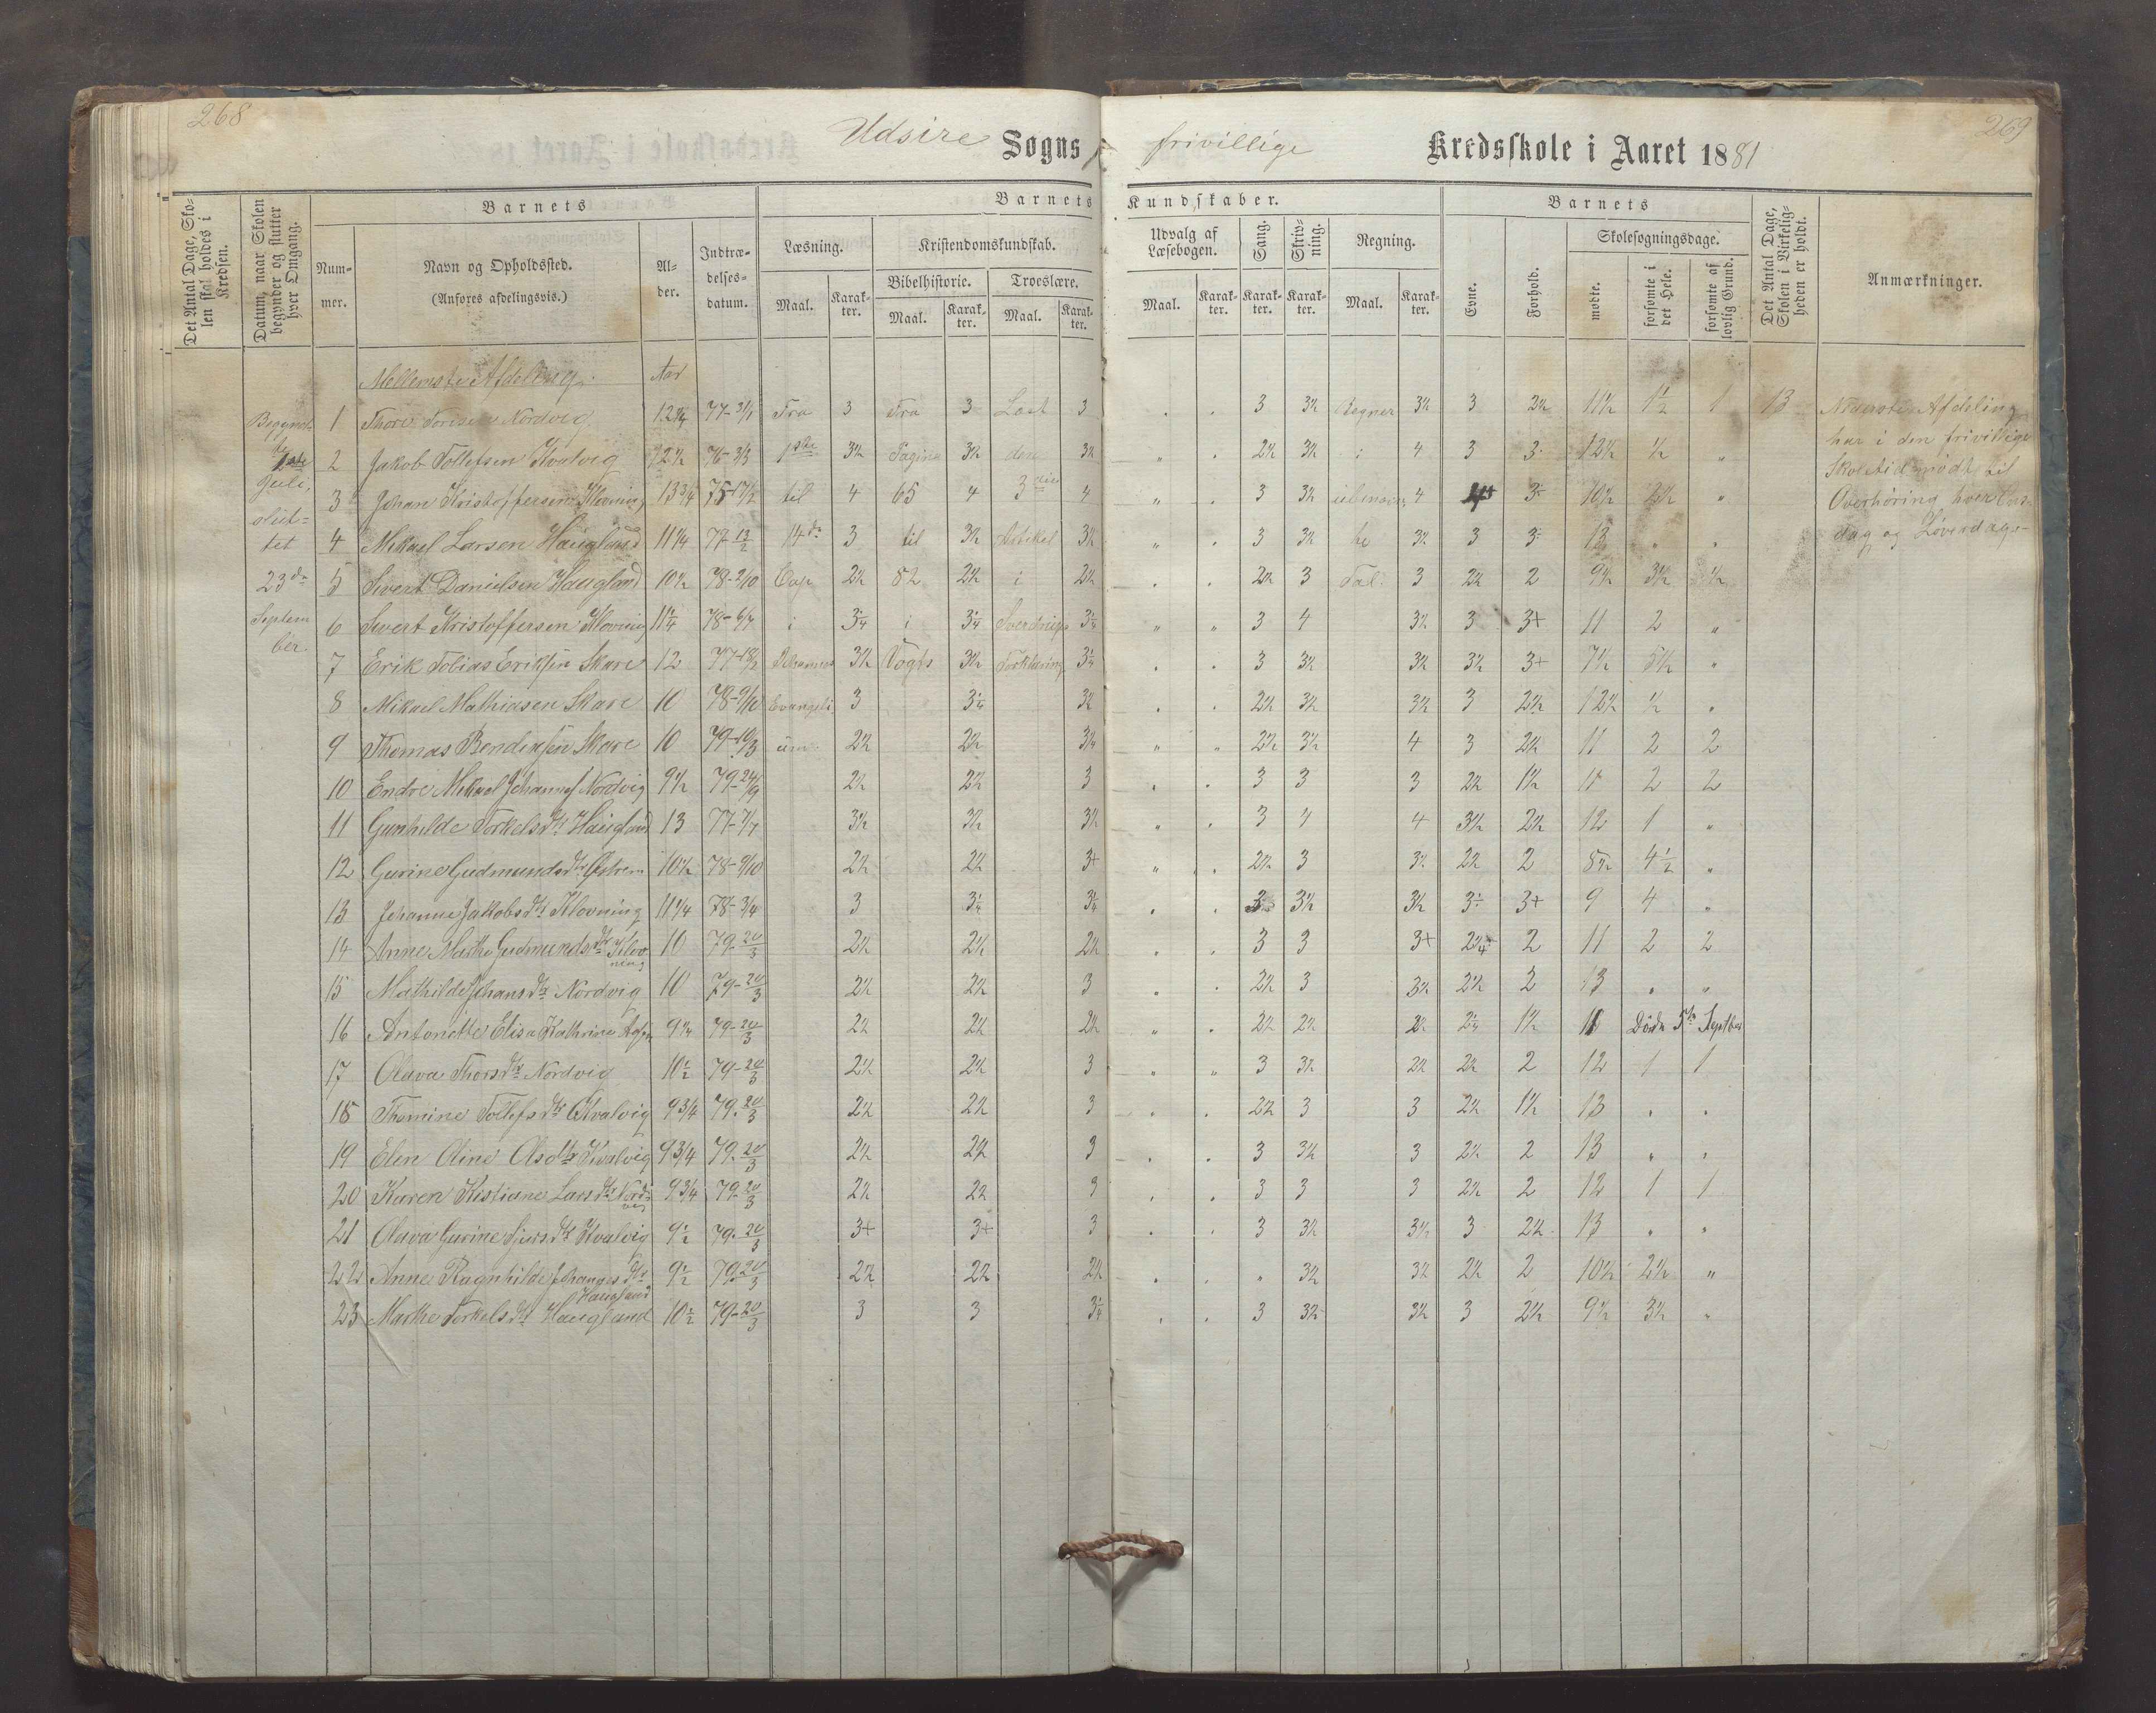 268
269
Udsire Sogns frivillige Kredsskole i Aaret 1881
Det Antal Dage, Skolen skal holdes i Kredsen.
Datum, naar Skolen begynder og slutter hver Omgang.
Barnets
Nummer.
Navn og Opholdssted.
(Anføres afdelingsvis.)
Alder.
Indtrædelsesdatum.
Barnets Kundskaber.
Læsning.
Maal. Karakter.
Kristendomskundskab.
Bibelhistorie.
Maal. Karakter.
Troeslære.
Maal. Karakter.
Udvalg af Læsebogen.
Maal. Karakter.
Sang.
Karakter.
Skrivning.
Karakter.
Regning.
Maal. Karakter.
Barnets
Evne.
Forhold.
Skolesøgningsdage.
mødte.
forsømte i det Hele.
forsømte af lovlig Grund.
Det Antal Dage, Skolen i Virkeligheden er holdt.
Anmærkninger.
Mellemste Afdeling. Aar
1 Thore Toresen Nordvig 12 1/4 77-31/1 Fra 3 Fra 3 Last 3 3 3½ Regner 3½ 3 2½ 11½ 1½ 1 13
2 Jakob Tollefsen Kvalvig 12½ 76-3/3 1ste 3½ Pagina 3½ den 3½ " 2½ 3½ i 4 3 3 12½ ½ "
3 Johan Kristoffersen Klovning 13¾ 75-17/2 til 4 65 4 3die 4 " 3 3½ 4 3 10½ 2½ "
4 Mikael Larsen Haugland 11¼ 77-13/2 14de 3 til 3½ Artikel 3½ " 3 3½ 3½ 3 3 13 " "
5 Sivert Danielsen Haugland 10½ 78-2/10 Cap 2½ 82 2½ i 2½ 2½ 3 Tal. 3 2½ 2 9½ 3½ ½
6 Sivert Kristoffersen Klovning 11¼ 78-6/7 i 3¼ i 3¼ Sverdrups 3¼ " " 3 4 3½ 3 3+ 11 2 "
7 Erik Tobias Eriksen Skare 12 Johannes 3½ Vogts 3½ Forklaring 3¼ 3 3½ 3½ 3½ 3+ 7½ 5½ "
8 Mikael Mathiasen Skare 10 78-9/10 Evangeli 3 3¼ 3½ 2½ 3½ 3½ 3 2½ 12½ ½ "
9 Thomas Bendiksen Skare 10 79-10/3 um 2½ 2½ 3¼ " " 2½ 3½ 4 3 2½ 11 2 2
10 Endre Mikael Johannes Nordvig 9½ 79-24/9 2½ 2½ 3 3 3 3 2½ 1½ 11 2 2
11 Gunhilde Torkelsdtr Haugland 13 77-7/7 3½ 3½ 3½ " 3 4 4 3½ 2½ 12 1 "
12 Gurine Gudmundsdtr Østrem 10½ 78-9/10 2½ 2½ 3+ " 2½ 3 3½ 2½ 2 8½ 4½ "
13 Johanne Jakobsdtr Klovning 11¼ 78-3/4 3 3¼ 3¼ 3 3½ 3½ 3 3+ 9 4 "
14 Anne Marthe Gudmundsdtr Klovning 10 79-20/3 2½ 2½ 2½ 3 3 3+ 2¼ 2 11 2 2
15 Mathilde Johansdtr Nordvig 10 79-20/3 2½ 2½ 3 2½ 3 3½ 2½ 2 13 " "
16 Antonette Elisa Kathrine 9¼ 79-20/3 2½ 2½ 2½ " 2½ 2½ 2½ 2¼ 1½ 11 Døde 5te Septbr
17 Olava Thorsdtr Nordvig 10½ 79-20/3 2½ 2½ 3 " " 3 3½ 2½ 2½ 2 12 1 1
18 Thomine Tollefsdtr Kvalvig 9¾ 79-20/3 2½ 2½ 3 2½ 3 3 2½ 1½ 13 " "
19 Elen Oline Olsdtr Kvalvig 9¾ 79-20/3 2½ 2½ 3 3 3½ 3 2½ 2 13 " "
20 Karen Kistiane Larsdtr Nordvig 9¾ 79-20/3 2½ 2½ 3 3 3 3 2½ 2 12 1 1
21 Olava Gurine Sjursdtr Kvalvig 9½ 79-20/3 3+ 3+ 3 3 3½ 3½ 3 2½ 13 " "
22 Anne Ragnhilde Johannesdtr Haugland 9½ 79-20/3 2½ 2½ 2½ " 3½ 3½ 2½ 2 10½ 2½ "
23 Marthe Torkelsdtr Haugland 10½ 79-20/3 3 3 3¼ 3 3½ 3½ 3 2½ 9½ 3½ "
Begyndte 1ste Juli,
sluttet
23de
September.
Nederste Afdeling
har i den frivillige
Skoletid mødt til
Overhøring hver Onsdag og Løverdag.